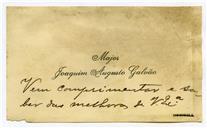 Major
Joaquim Augusto Galvão
Vem comprimentar e sa-
ber das melhoras de V. Ex.ª